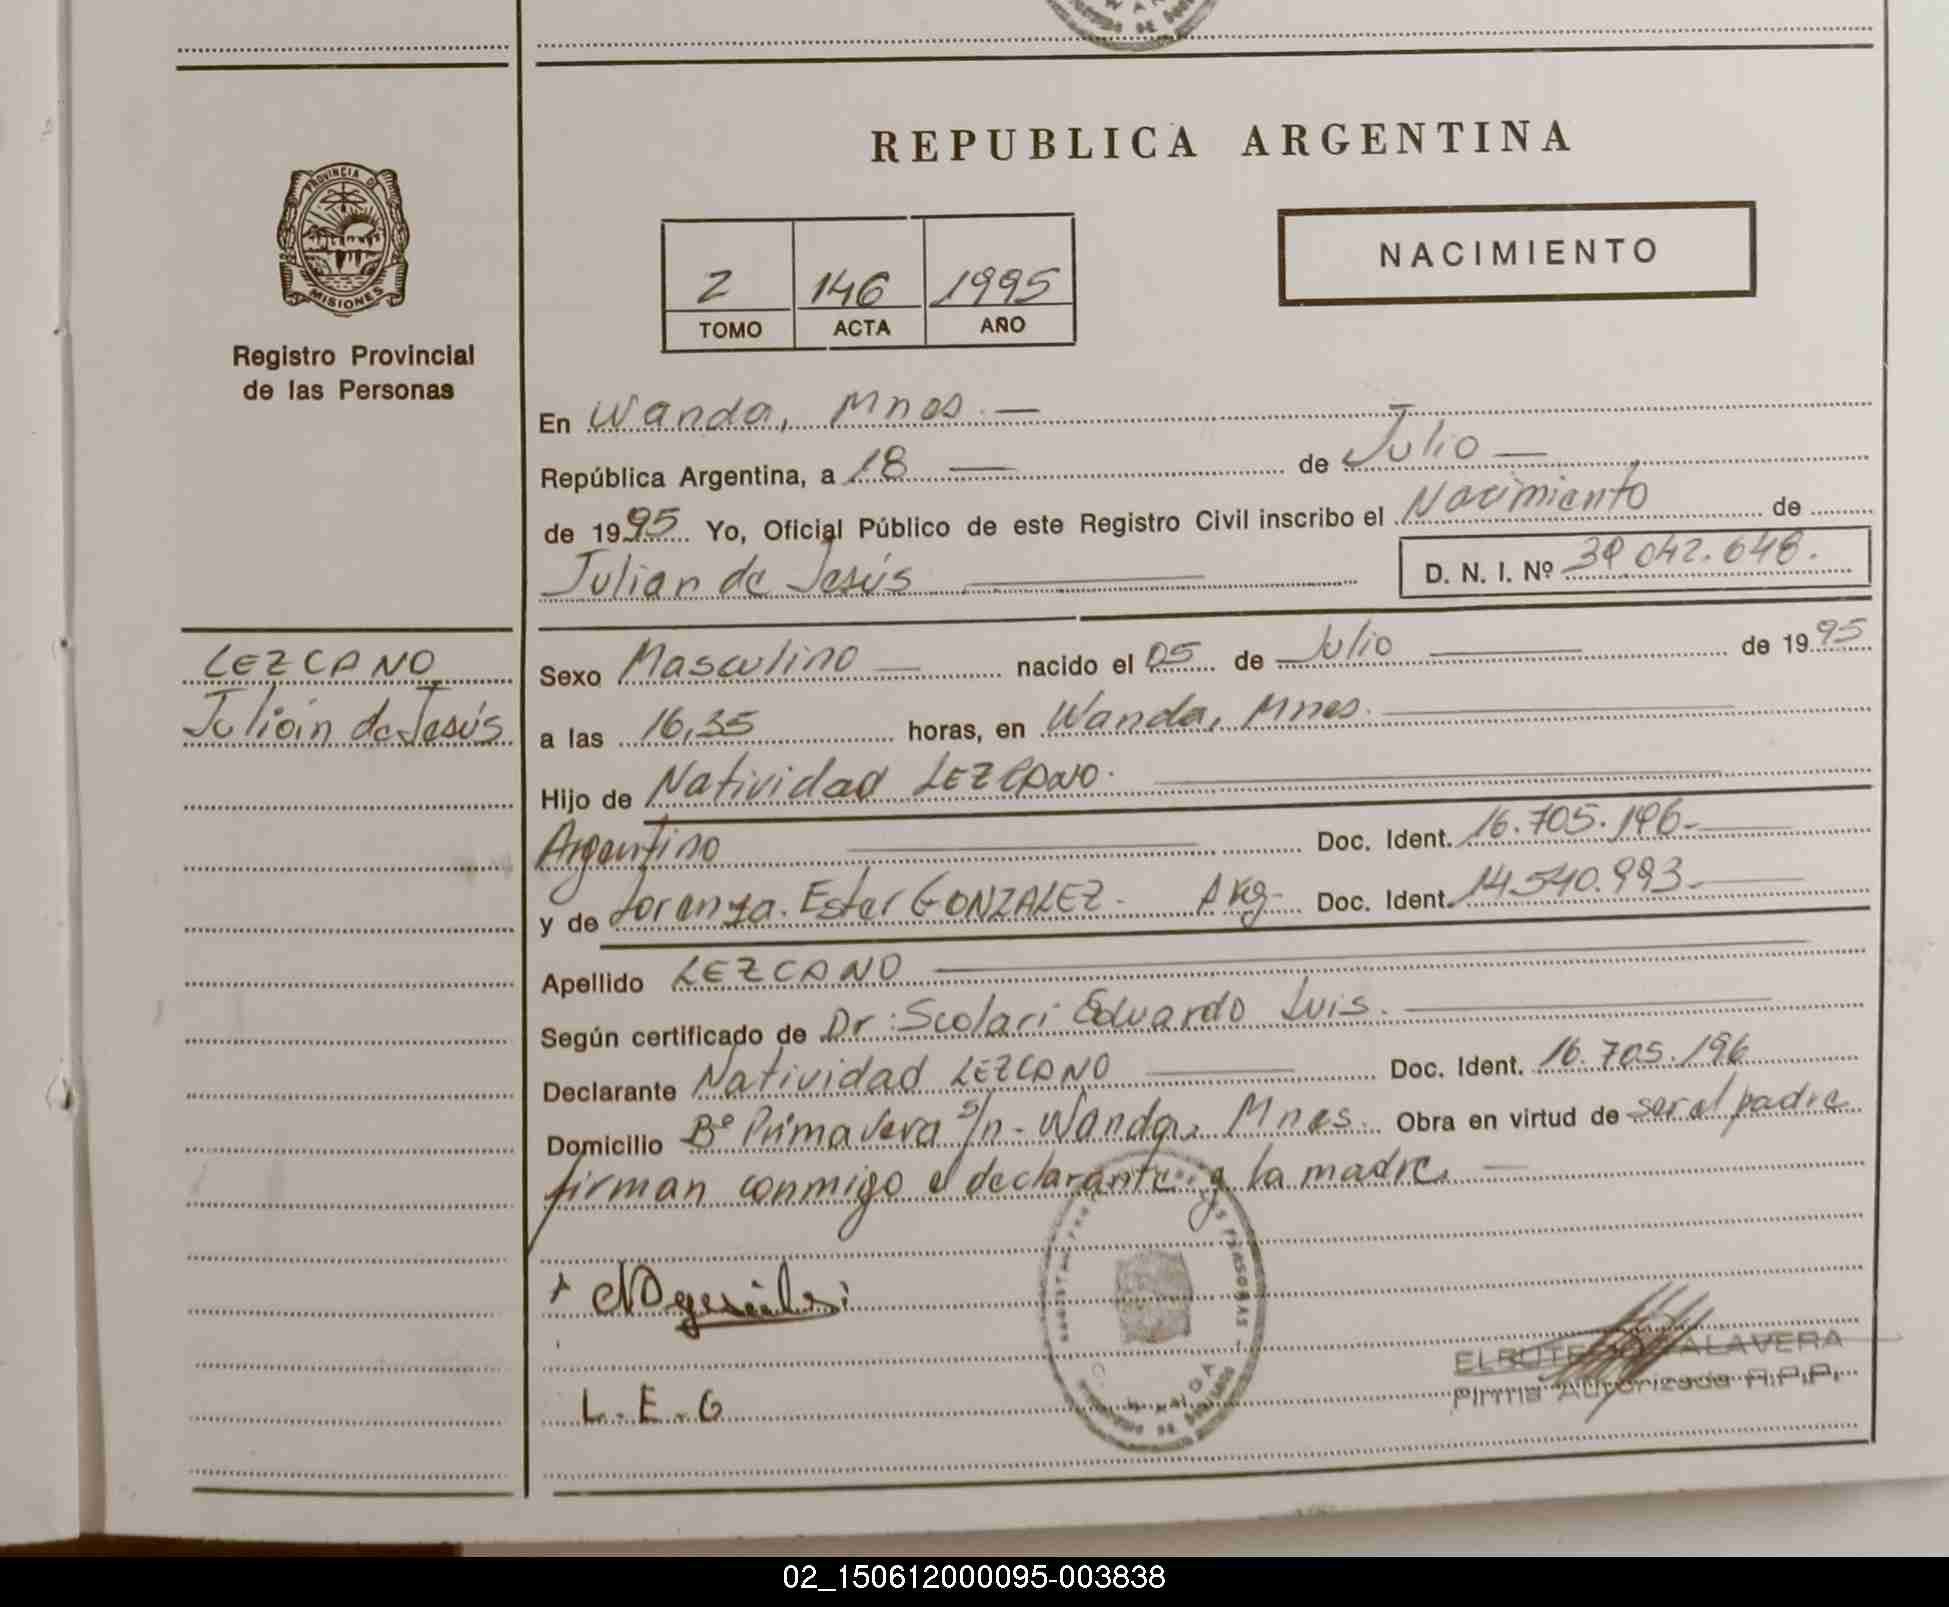 REPUBLICA ARGENTINA
NACIMIENTO
2 146 1995
TOMO ACTA AÑO
PROVINCIA DE
MISIONES
Registro Provincial
de las Personas
En Wanda, Mnes. —
República Argentina, a 18 — de Julio —
de 1995 Yo, Oficial Público de este Registro Civil inscribo el Nacimiento de
Julian de Jesús D. N. I. Nº 39 042.648.
LEZCANO
Julián de Jesús
Sexo Masculino — nacido el 05 de Julio — de 1995
a las 16,35 horas, en Wanda, Mnes.
Hijo de Natividad LEZCANO.
Argentino — Doc. Ident. 16.705.196.
y de Lorenza Ester GONZALEZ. Arg. Doc. Ident. 14.540.993.
Apellido LEZCANO
Según certificado de Dr: Scolari Eduardo Luis.
Declarante Natividad LEZCANO — Doc. Ident. 16.705.196
Domicilio Bº Primavera s/n - Wanda, Mnes. Obra en virtud de ser el padre
firman conmigo el declarante y la madre. —
L. E. G
TALAVERA
Firma Autorizada R.P.P.
02_150612000095-003838